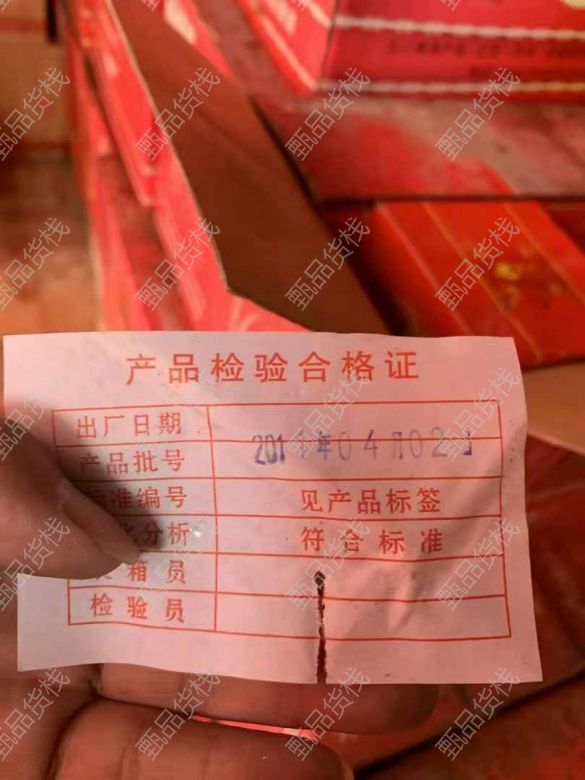 产品检验合格证
出厂日期
产品批号
年04月02日
标准编号 见产品标签
分析 符合标准
箱员
检验员
甄品货栈